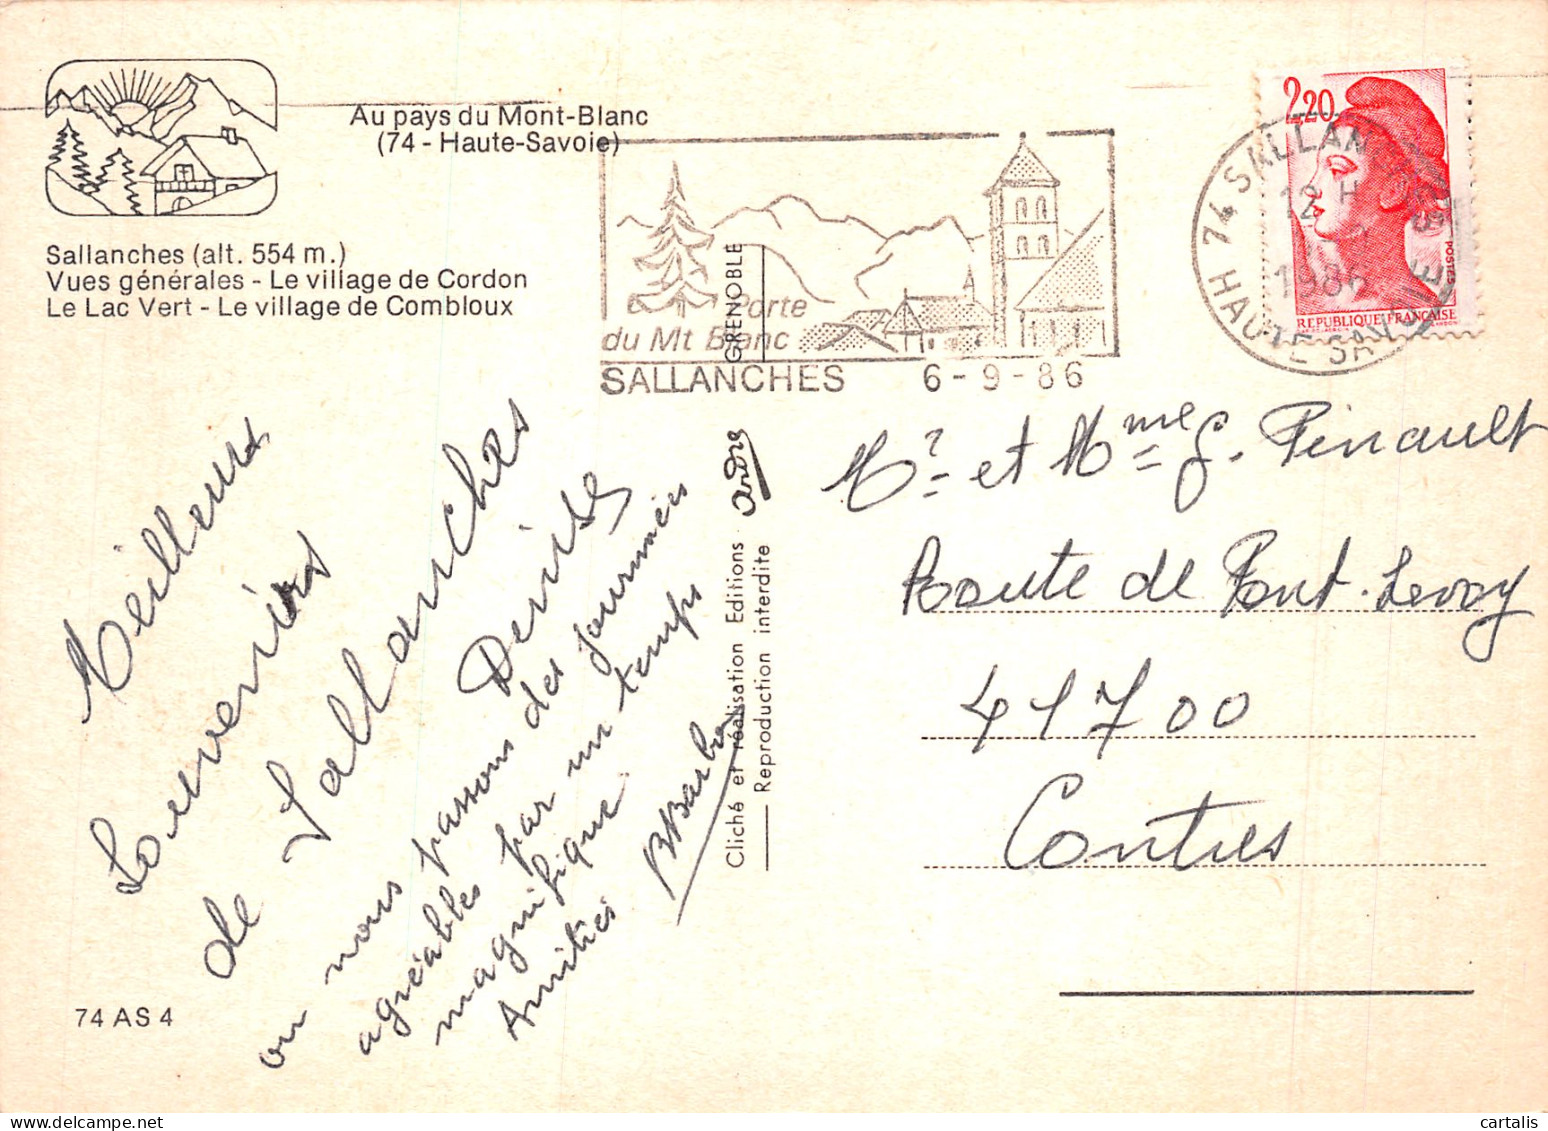 Au pays du Mont-Blanc
(74 - Haute-Savoie)
Sallanches (alt. 554 m.)
Vues générales - Le village de Cordon
Le Lac Vert - Le village de Combloux
Porte
du Mt Blanc
SALLANCHES 6-9-86
74 SALLANCHES
12 H
1986
HAUTE SAVOIE
2,20
POSTES
REPUBLIQUE FRANÇAISE
Meilleurs
Souvenirs
de Sallanches
Denise
ou nous passons des journées
agréables par un temps
magnifique
Amitiés
GRENOBLE
Cliché et réalisation Editions André
Reproduction interdite
Mr et Mme G. Pinault
Route de Pont-Levoy
41700
Contres
74 AS 4
cartalis